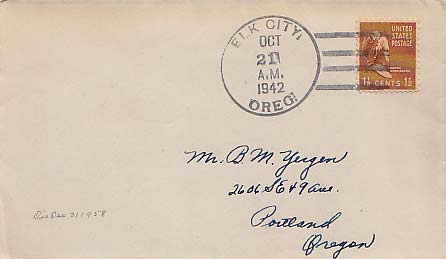 ELK CITY,
OCT
21
A.M.
1942
OREG.
UNITED
STATES
POSTAGE
1½ CENTS 1½
Mr. B. M. Yergen
2606 SE 49 Ave.
Portland
Oregon
Dis Dec 31 1958